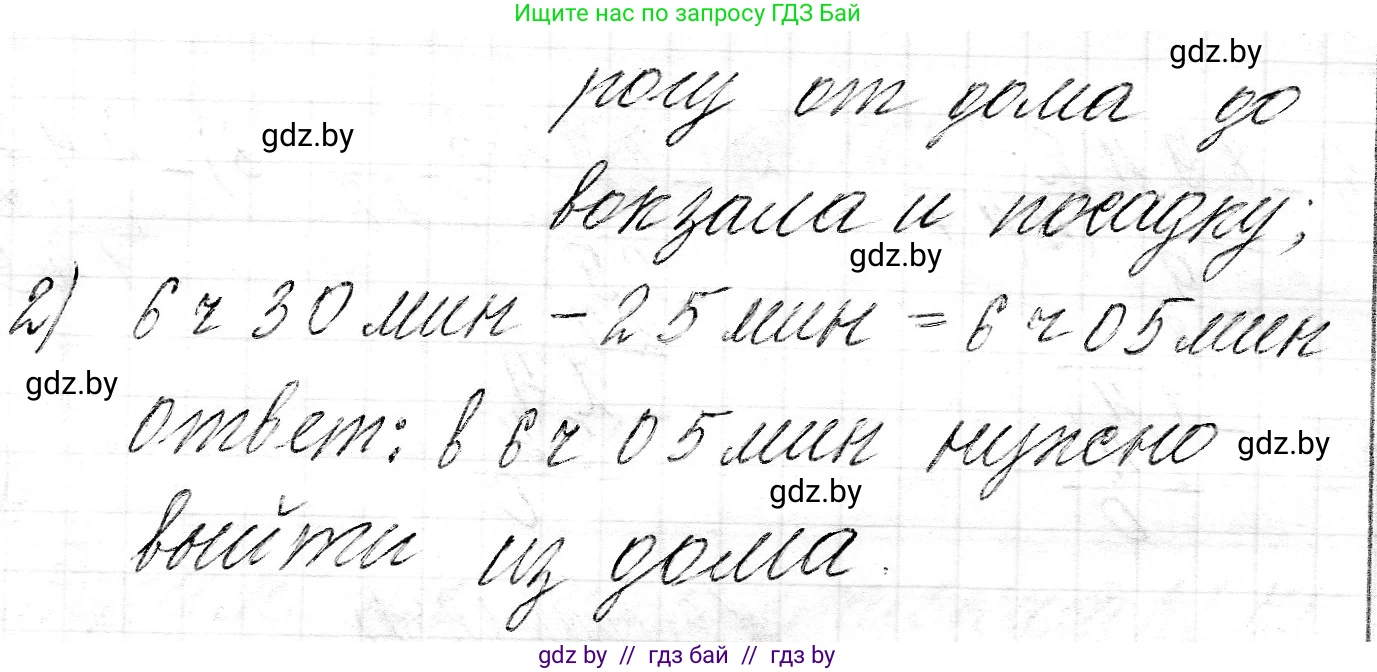 Ищите нас по запросу ГДЗ Бай
gdz.by
рогу от дома до
gdz.by
вокзала и посадку;
gdz.by
2) 6 ч 30 мин - 25 мин = 6 ч 05 мин
gdz.by
ответ: в 6 ч 05 мин нужно
gdz.by
gdz.by
выйти из дома.
gdz by // гдз бай // гдз by